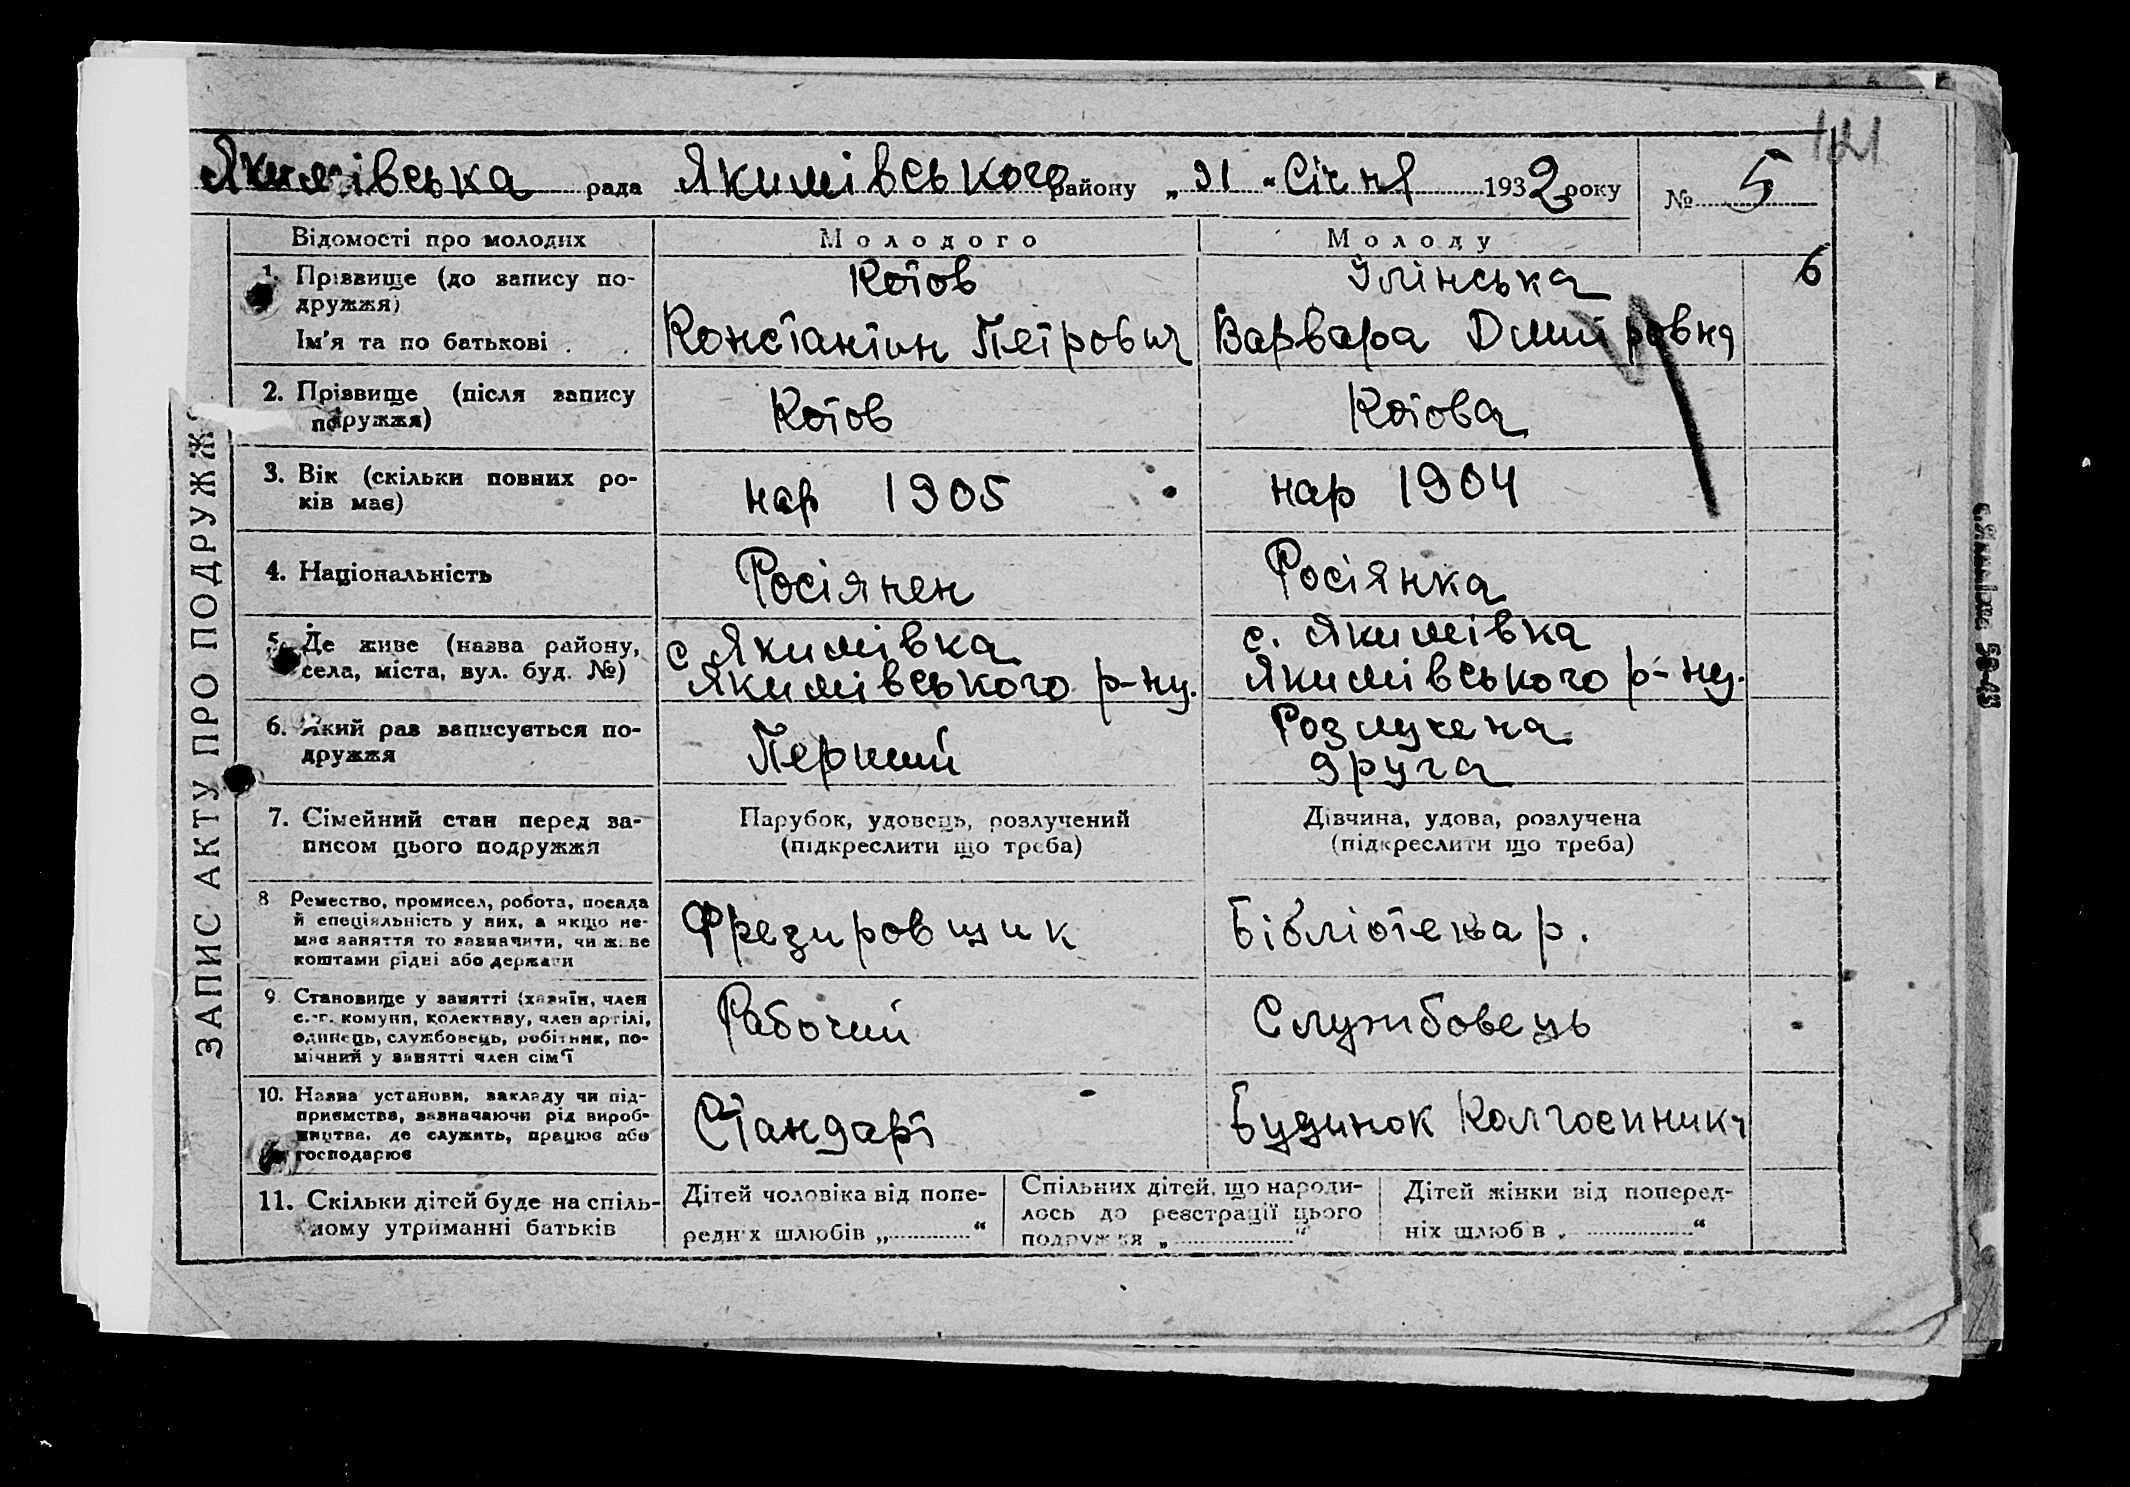 121
Якимівська рада Якимівського району „ 31 “ Січня 1932 року № 5
Відомості про молодих Молодого Молоду
6
1. Прізвище (до запису по-
дружжя)
Котов
Ілінська
Ім'я та по батькові
Константин Петрович
Варвара Дмитровна
2. Прізвище (після запису
подружжя)
Котов
Котова
3. Вік (скільки повних ро-
ків має)
нар 1905
нар 1904
4. Національність
Росіянен
Росіянка
5. Де живе (назва району,
села, міста, вул. буд. №)
с Якимівка
Якимівського р-ну.
с. Якимівка
Якимівського р-ну.
6. Який раз записується по-
дружжя
Перший
Розлучена
друга
7. Сімейний стан перед за-
писом цього подружжя
Парубок, удовець, розлучений
(підкреслити що треба)
Дівчина, удова, розлучена
(підкреслити що треба)
8 Ремество, промисел, робота, посада
й спеціяльність у них, а якщо не-
має заняття то зазначити, чи живе
коштами рідні або держави
Фрезировщик
Бібліотекар.
9. Становище у занятті (хазяїн, член
с.-г. комуни, колективу, член артілі,
одинець, службовець, робітник, по-
мічний у занятті член сім'ї
Рабочий
Службовець
10. Назва установи, закладу чи під-
приємства, зазначаючи рід вироб-
ництва, де служить, працює або
господарює
Стандарт
Будинок Колгоспника
11. Скільки дітей буде на спіль-
ному утриманні батьків
Дітей чоловіка від попе-
редніх шлюбів „ “
Спільних дітей, що народи-
лось до реєстрації цього
подружжя „ “
Дітей жінки від поперед-
ніх шлюбів „ “
ЗАПИС АКТУ ПРО ПОДРУЖЖЯ